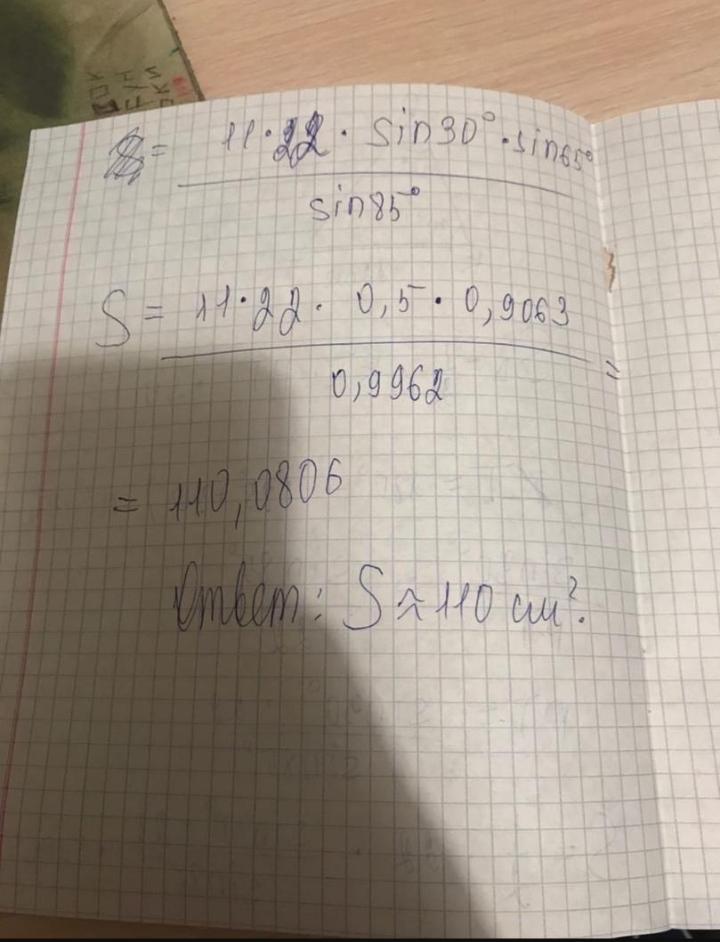 = 11·22· sin30°·sin65°
sin85°
S = 11·22· 0,5· 0,9063 =
0,9962
= 110,0806
Ответ: S ≈ 110 см².